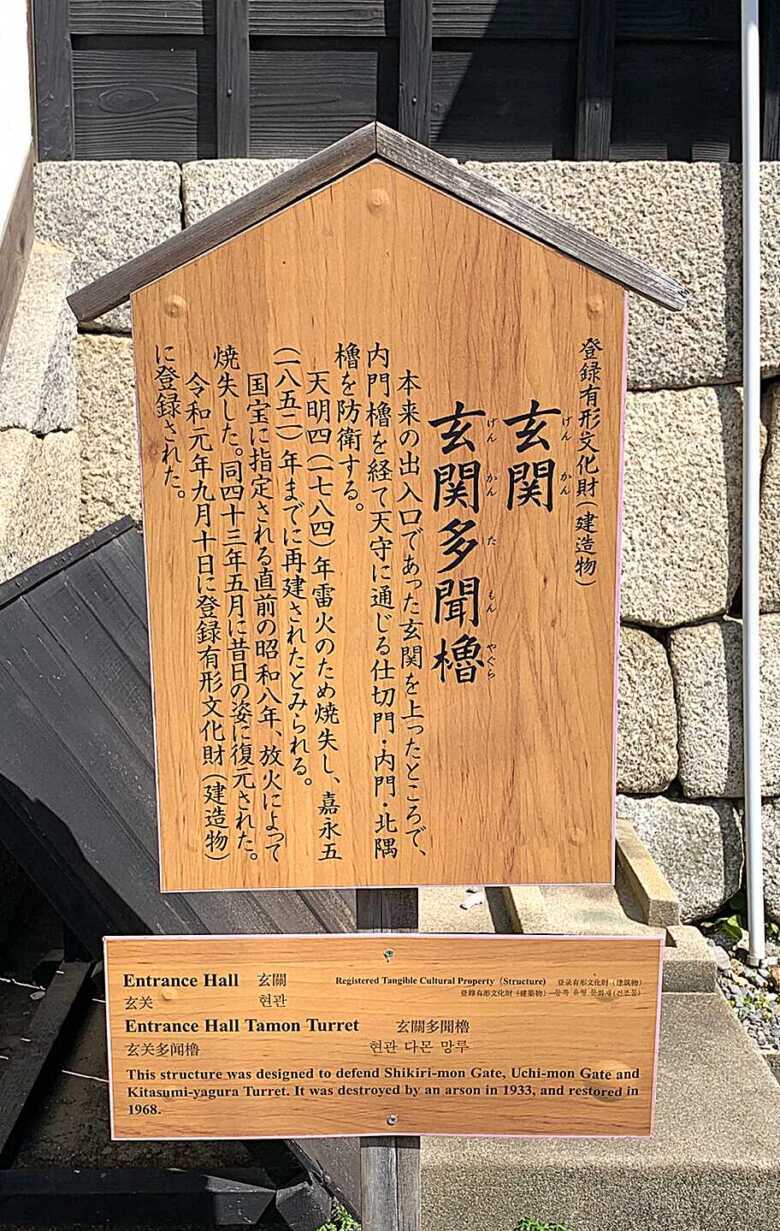 登録有形文化財(建造物)
玄関
げんかん
玄関多聞櫓
げんかんたもんやぐら
本来の出入口であった玄関を上ったところで、
内門櫓を経て天守に通じる仕切門・内門・北隅
櫓を防衛する。
天明四(一七八四)年雷火のため焼失し、嘉永五
(一八五二)年までに再建されたとみられる。
国宝に指定される直前の昭和八年、放火によって
焼失した。同四十三年五月に昔日の姿に復元された。
令和元年九月十日に登録有形文化財(建造物)
に登録された。
Entrance Hall 玄關 Registered Tangible Cultural Property (Structure) 登录有形文化財(建筑物)
玄关 현관 登錄有形文化財(建築物) 등록 유형 문화재(건조물)
Entrance Hall Tamon Turret 玄關多聞櫓
玄关多闻櫓 현관 다몬 망루
This structure was designed to defend Shikiri-mon Gate, Uchi-mon Gate and
Kitasumi-yagura Turret. It was destroyed by an arson in 1933, and restored in
1968.